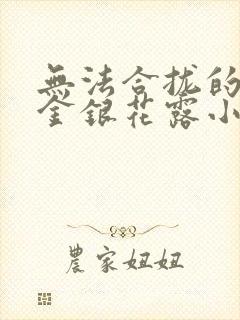 無法合拢的
金銀花露小
農家妞妞